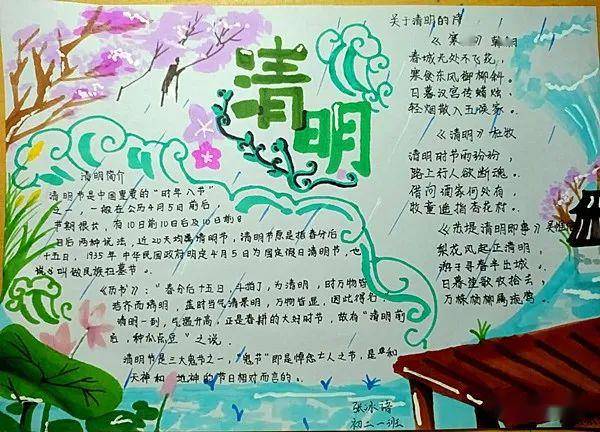 清明
清明简介
清明节是中国重要的“时年八节”
之一，一般在公历4月5日前后
节期很长，有10日前10日后及10日前8
日后两种说法，近20天均属清明节，清明节原是指春分后
十五日，1935年中华民国政府明定4月5日为国定假日清明节，也
叫做民族扫墓节。
《历书》：“春分后十五日，斗指丁，为清明，时万物皆
洁齐而清明，盖时当气清景明，万物皆显，因此得名。
清明一到，气温升高，正是春耕的大好时节，故有“清明前
后，种瓜点豆”之说。
清明节是三大鬼节之一，“鬼节”即是悼念亡人之节，是和
天神和地神的节日相对而言的。
关于清明的诗
《寒》韩
春城无处不飞花，
寒食东风御柳斜。
日暮汉宫传蜡烛，
轻烟散入五侯家。
《清明》杜牧
清明时节雨纷纷，
路上行人欲断魂。
借问酒家何处有，
牧童遥指杏花村。
《苏堤清明即事》吴惟信
梨花风起正清明，
游子寻春半出城。
日暮笙歌收拾去，
万株杨柳属流莺。
张冰语
初二一班